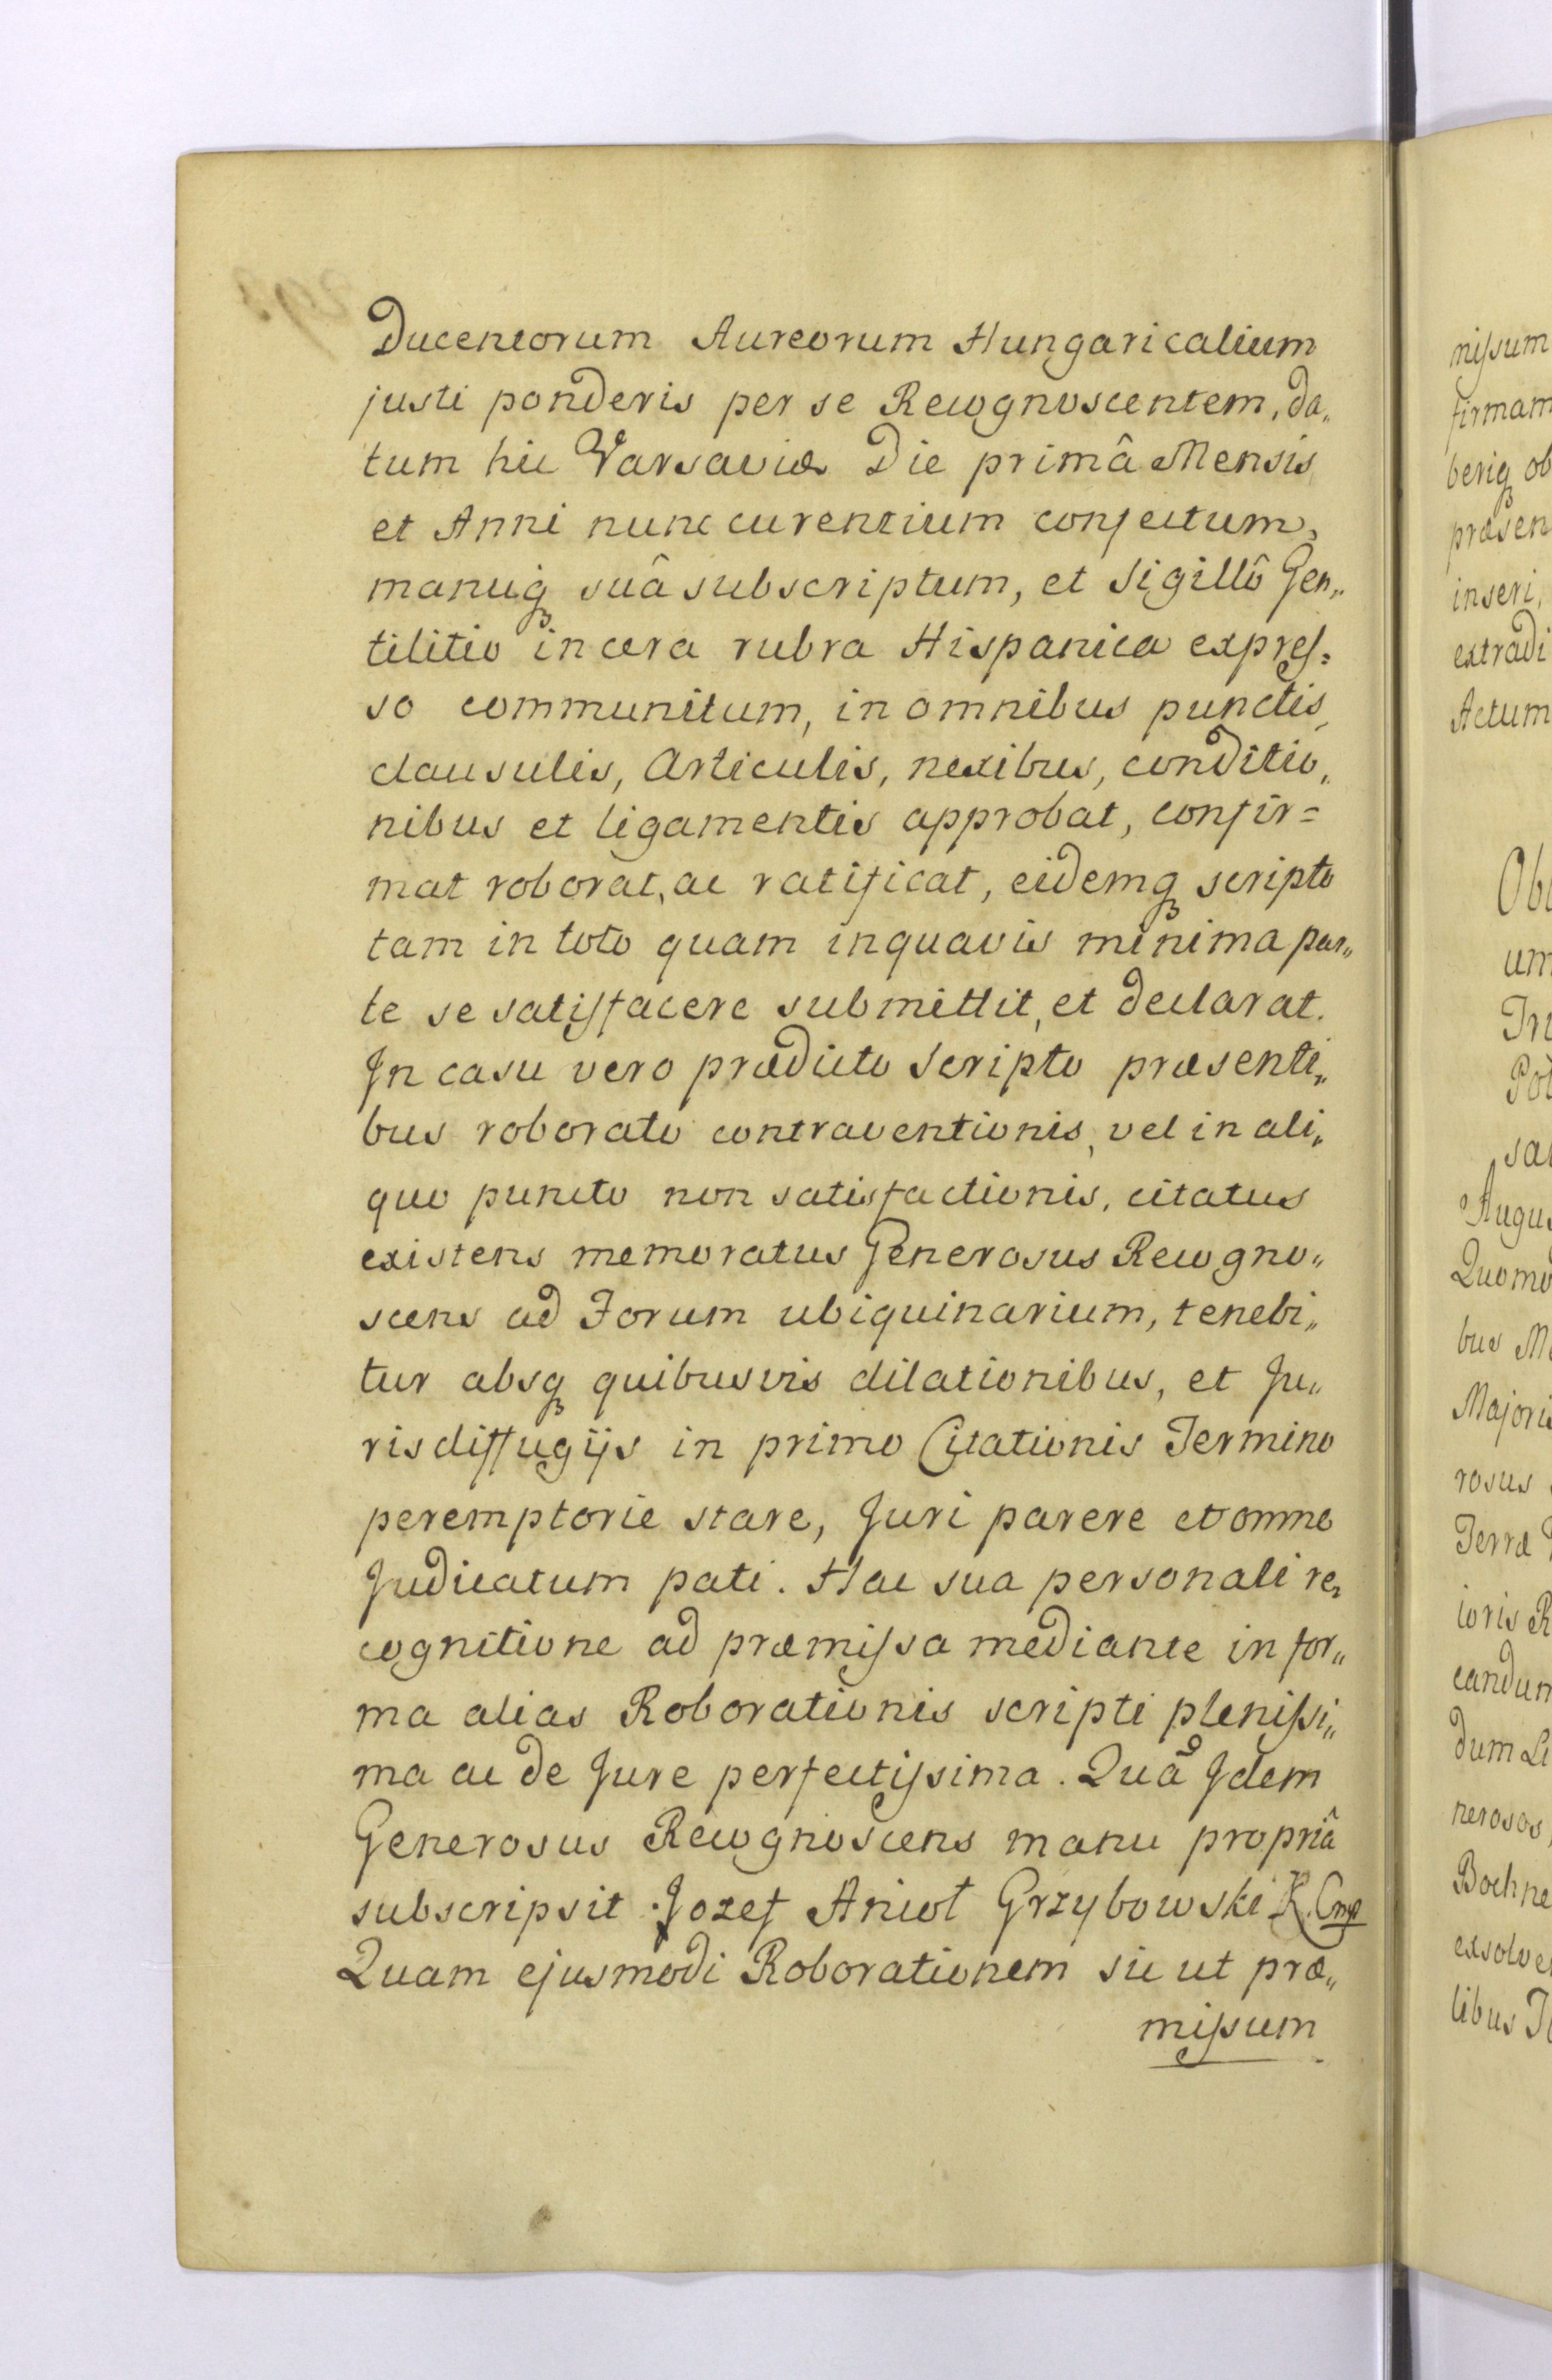 Ducentorum Aureorum Hungaricalium
justi ponderis per se Recognoscentem, da„
tum hic Varsaviæ Die primâ Mensis
et Anni nunc curentium confectum,
manuq; suâ subscriptum, et Sigillô Gen„
tilitio in cera rubra Hispanica expres=
so communitum, in omnibus punctis,
clausulis, Articulis, nexibus, conditio„
nibus et ligamentis approbat, confir=
mat roborat, ac ratificat, eidemq; scripto
tam in toto quam inquavis minima par„
te se satisfacere submittit, et declarat.
In casu vero prædicto Scripto præsenti„
bus roborato contraventionis, vel in ali„
quo puncto non satisfactionis, citatus
existens memoratus Generosus Recogno„
scens ad Forum ubiquinarium, tenebi„
tur absq; quibusvis dilationibus, et Ju„
ris diffugijs in primo Citationis Termino
peremptorie stare, Juri parere et omne
Judicatum pati. Hac sua personali re„
cognitione ad præmissa mediante in for„
ma alias Roborationis scripti plenissi„
ma ac de Jure perfectissima. Quã Idem
Generosus Recognoscens manu propriâ
subscripsit Jozef Anioł Grzybowski K. C mp
Quam ejusmodi Roborationem sic ut præ„
missum
missum
firmam
beriq; ob
præsen
inseri,
extradi
Actum
Obl
um
In
Pot
sal
Augus
Quomo
bus M
Majoris
rosus
Terræ
ioris R
candum
dum Li
nerosos,
Bochne
exsolve
libus